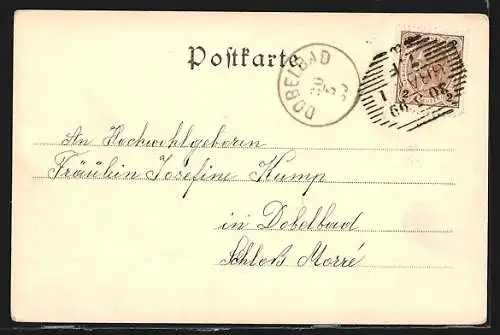 Postkarte
DOBELBAD
30 5 99
An Hochwohlgeboren
Fräulein Josefine Kump
in Dobelbad
Schloß Morré